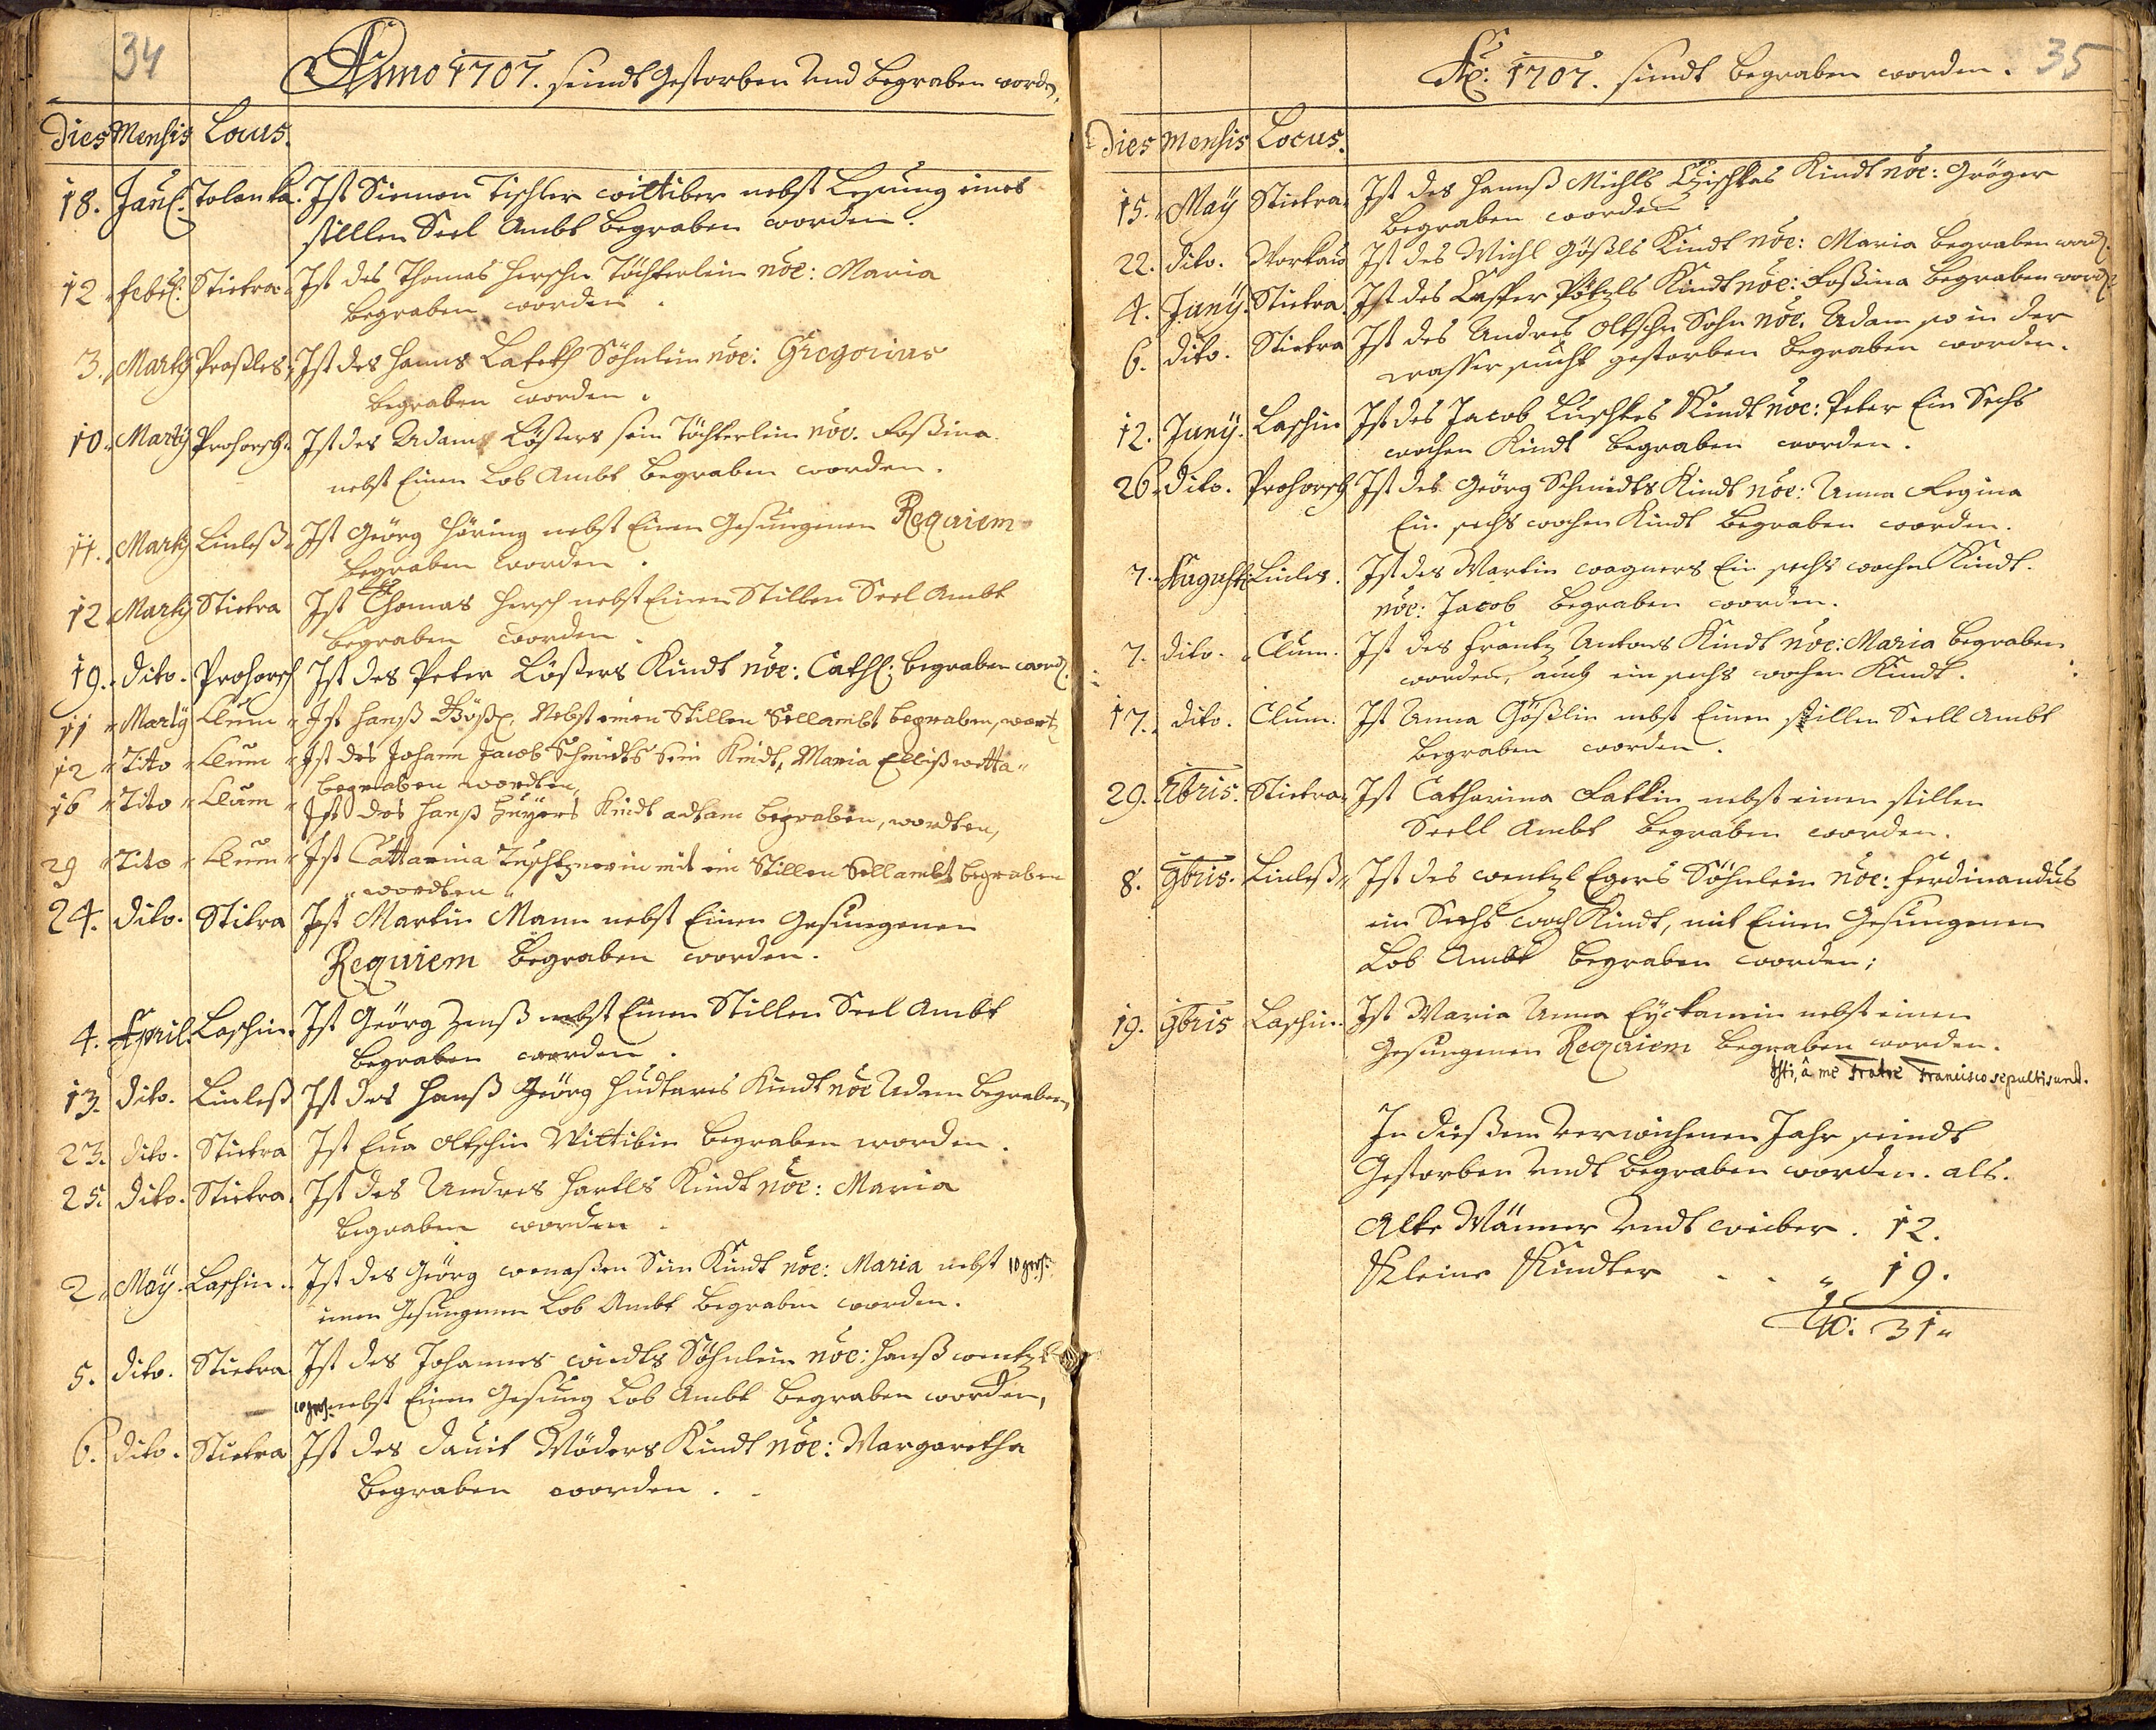 34
Anno 1707. seindt Gestorben Und begraben word,
Dies Mensis Locus.
18. Janl: Ist Siemon Tischler wittiber nebst Lesung eines
stillen Seel Ambt begraben worden.
12 febrl: Stietra Ist des Thomas Hersche Töchterlein nõe: Maria
begraben worden.
3. Martÿ Ist des Hanns Söhnlein nõe: Gregorius
begraben worden.
10. Martÿ Prohorsch Ist des Adam Lösters sein Töchterlein nõe. Rosina
nebst Einen Lob Ambt begraben worden.
11. Martÿ Linleß Ist Geörg Häring nebst Einen Gesungenen Requiem
begraben worden.
12 Martÿ Stietra Ist Thomas Hersch nebst Einen Stillen Seel Ambt
begraben worden.
19. dito. Prohorsch Ist des Peter Lößters Kindt nõe: Cathl: begraben word.
11 Martÿ Clum Ist Hanß Nebst einen Stillen Sellambt begraben, wort
12 Tito Clum Ist des Johann Jacob Schmidts Sein Kindt, Maria Ellißwetta
begraben wordten,
16 Tito Clum Ist des Hanß Kindt adtam begraben, wordten,
29 Tito Clum Ist Cattarina mit ein Stillen Sellambt begraben
wordten
24. dito. Stitra Ist Martin Mann nebst Einen Gesungenen
Requiem begraben worden.
4. April. Laschin. Ist Geörg Zenß nebst Einen Stillen Seel Ambt
begraben worden.
13. dito. Linleß Ist des Hanß Geörg Kindt nõe Adam begraben,
23. dito. Stietra Ist Eua Oltschin Wittibin begraben worden.
25. dito. Stietra. Ist des Andres Hartls Kindt nõe: Maria
begraben worden.
2. Maÿ. Laschin. Ist des Geörg Sein Kindt nõe: Maria nebst
einen Gesungenen Lob Ambt begraben worden.
5. dito. Stietra Ist des Johannes windts Söhnlein nõe: Hanß wentzl
nebst Einen Gesung Lob Ambt begraben worden,
6. dito. Stietra Ist des Dauit Möders Kindt nõe: Margaretha
begraben worden.
35
Aõ: 1707. seindt begraben worden.
Dies Mensis Locus.
15. Maÿ Stietra. Ist des Hannß Michls Kindt nõe: Gröger
begraben worden.
22. dito. Ist des Michl Gößls Kindt nõe: Maria begraben word.
4. Junÿ. Stietra. Ist des Casper Pötzls Kindt nõe: Rosina begraben word.
6. dito. Stietra Ist des Andres Oltsche Sohn nõe. Adam so in der
wasser sucht gestorben begraben worden.
12. Junÿ. Laschin Ist des Jacob Luschkes Kindt nõe: Peter Ein Sechs
wochen Kindt begraben worden.
26. dito. Prohorsch Ist des Geörg Schmidts Kindt nõe: Anna Regina
Ein sechs wochen Kindt begraben worden.
7. Augusti Linles. Ist des Martin wagners Ein sechs wochn Kindt.
nõe: Jacob begraben worden.
7. dito. Clum. Ist des Frantz Antons Kindt nõe: Maria begraben
worden, auch ein sechs wochen Kindt.
17. dito. Clum. Ist Anna Gößlin nebst Einen stillen Seell Ambt
begraben worden.
29. Stietra. Ist Catharina nebst einen stillen
Seell Ambt begraben worden.
8. 9bris. Linleß Ist des wentzl Egers Söhnlein nõe: Ferdinandus
ein Sechs woch Kindt, mit Einen Gesungenen
Lob Ambt begraben worden;
19. 9bris Laschin. Ist Maria Anna nebst einen
Gesungenen Requiem begraben worden.
Isti, â me Fratre Francisco sepulti sund.
In dießem Verwichenen Jahr seindt
Gestorben Undt begraben worden. als.
Alte Männer Undt weiber. 12.
Kleine Kindter 19.
31